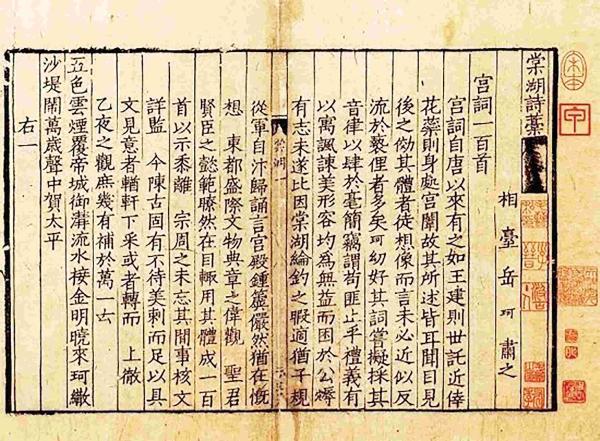 棠湖詩藁
相臺岳 珂 肅之
宮詞一百首
宮詞自唐以來有之如王建則世託近倖
花蘂則身處宮闈故其所述皆耳聞目見
後之倣其體者徒想像而言未必近似反
流於褻俚者多矣珂幼好其詞嘗擬採其
音律以肄於毫簡竊謂苟匪止乎禮義有
以寓諷諫美形容均為無益而困於公
有志未遂比因棠湖綸釣之暇適猶子規
棠湖
從軍自汴歸誦言宮殿鍾簴儼然猶在慨
想 東都盛際文物典章之偉觀 聖君
賢臣之懿範瞭然在目輒用其體成一百
首以示黍離 宗周之未忘其間事核文
詳監 今陳古固有不待美刺而足以具
文見意者輶軒下采或者轉而 上徹
乙夜之觀庶幾有補於萬一云
五色雲煙覆帝城御溝流水接金明曉來珂繖
沙堤鬧萬歲聲中賀太平
右一